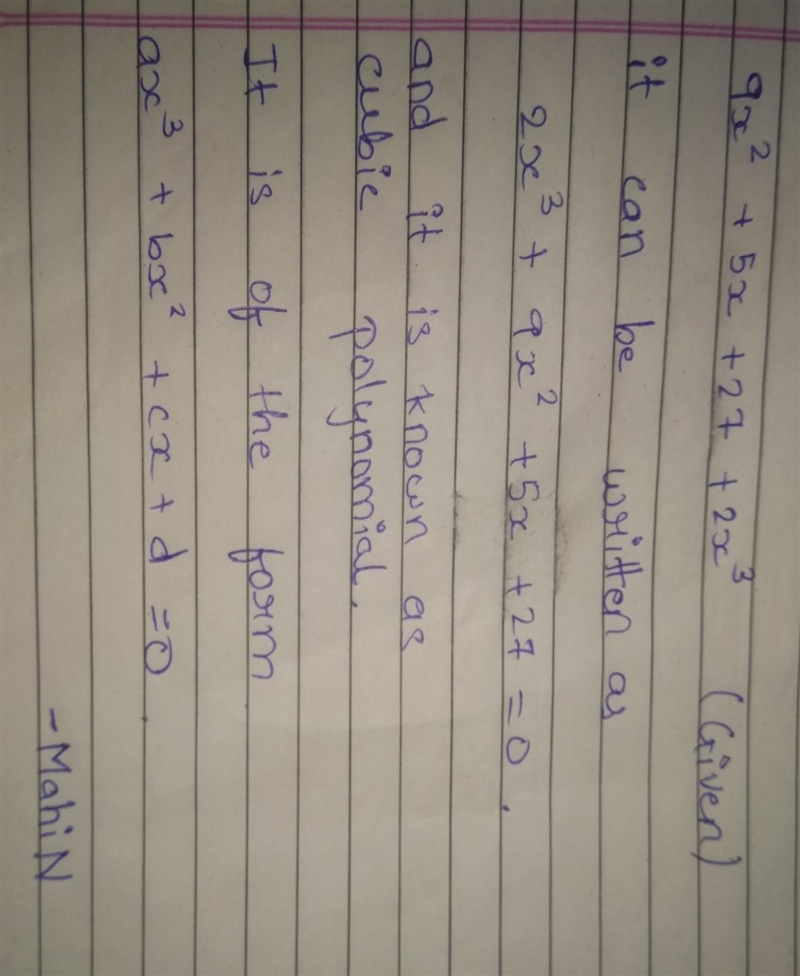 9x² + 5x + 27 + 2x³ (Given)
it can be written as
2x³ + 9x² + 5x + 27 = 0.
and it is known as
cubic polynomial.
It is of the form
ax³ + bx² + cx + d = 0.
- Mahi N